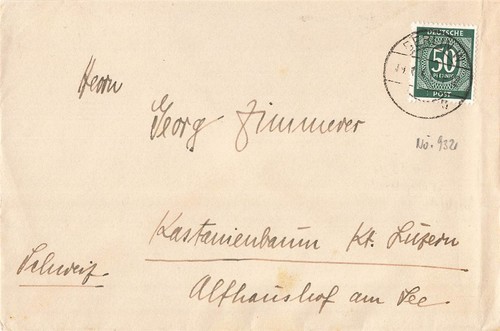 DEUTSCHE
50
PFENNIG
POST
Herrn
Georg Zimmerer
No. 932
Kastanienbaum Kt. Luzern
Schweiz
Althaushof am See.